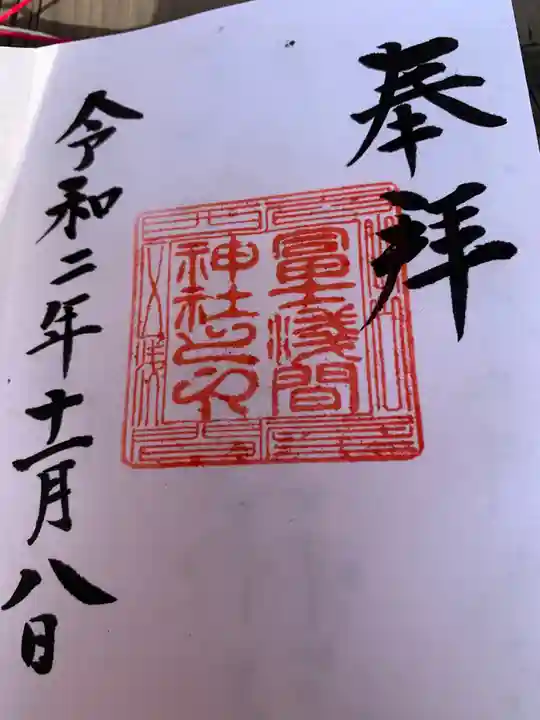 奉拝
冨士浅間
神社之印
令和二年十一月八日